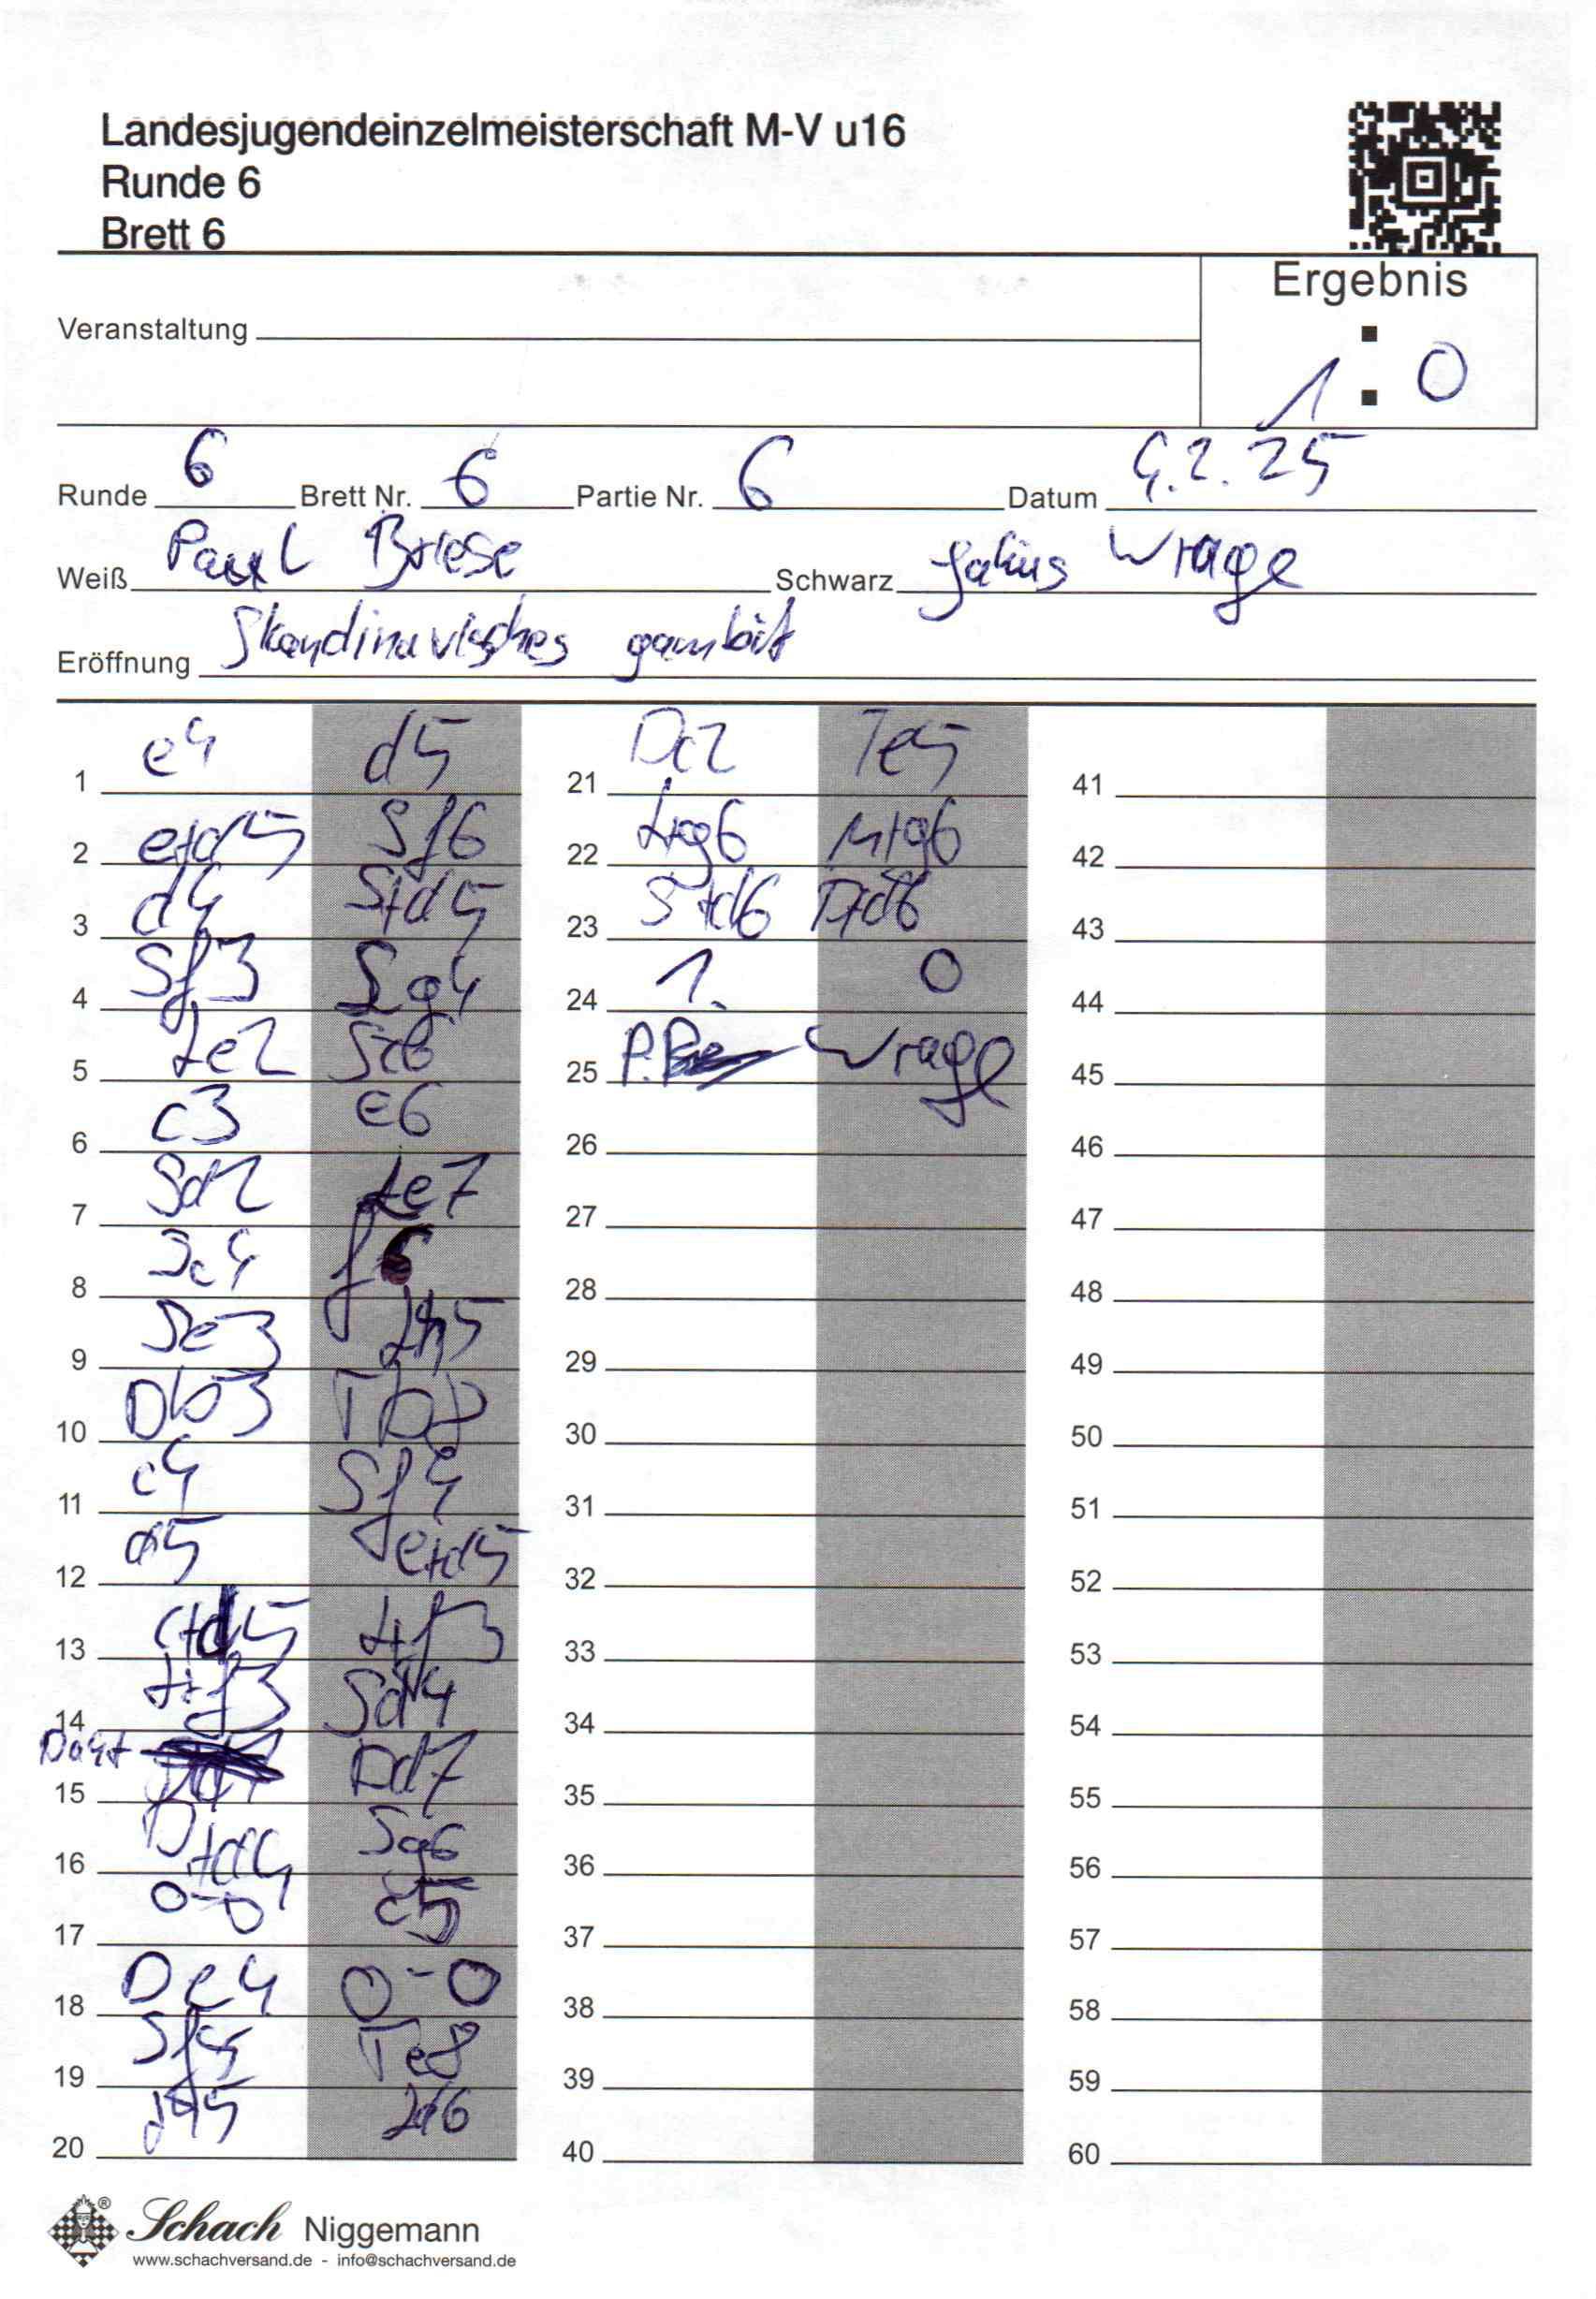 Landesjugendeinzelmeisterschaft M-V u16
Runde 6
Brett 6
Ergebnis
Veranstaltung
1 : 0
Runde 6 Brett Nr. 6 Partie Nr. 6 Datum 4.2.25
Weiß Paul Briese Schwarz Julius Wrage
Eröffnung Skandinavisches gambit
1 e4 d5
2 exd5 Sf6
3 d4 Sxd5
4 Sf3 Lg4
5 Le2 Sc6
6 c3 e6
7 Sd2 Le7
8 Sc4 f6
9 Se3 Lh5
10 Db3 Tb8
11 c4 Sf4
12 d5 exd5
13 cxd5 Lxf3
14 Lxf3 Sd4
15 Da4+ Dd7
16 Dxd4 Sg6
17 0-0 c5
18 De4 0-0
19 Sf5 Te8
20 Lh5 Ld6
21 Dc2 Te5
22 Lxg6 hxg6
23 Sxd6 Dxd6
24 1. 0
25 Wrage
26
27
28
29
30
31
32
33
34
35
36
37
38
39
40
41
42
43
44
45
46
47
48
49
50
51
52
53
54
55
56
57
58
59
60
Schach Niggemann
www.schachversand.de - info@schachversand.de